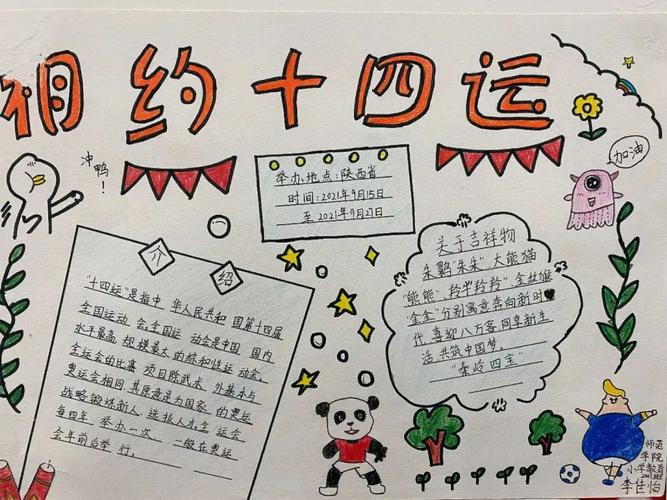 相约十四运
冲鸭!
加油
举办地点:陕西省
时间:2021年9月15日
至2021年9月27日
介绍
"十四运"是指中 华人民共和 国第十四届
全国运动 会。全国运 动会是中国 国内
水平最高 规模最大 的综和性运 动会。
全运会的比赛 项目除武术 外基本与
奥运会相同 其原意是为国家 的奥运
战略锻炼新人 选拔人才全 运会
每四年 举办一次, 一般在奥运
会年前后举 行。
关于吉祥物
朱鹮"朱朱" 大熊猫
"熊熊"、羚羚羚"、金丝猴
"金金"分别寓意奔向新时
代、喜迎八方客 同享新生
活 共筑中国梦。
"秦岭四宝"
师范
学院
小学教育
李佳怡